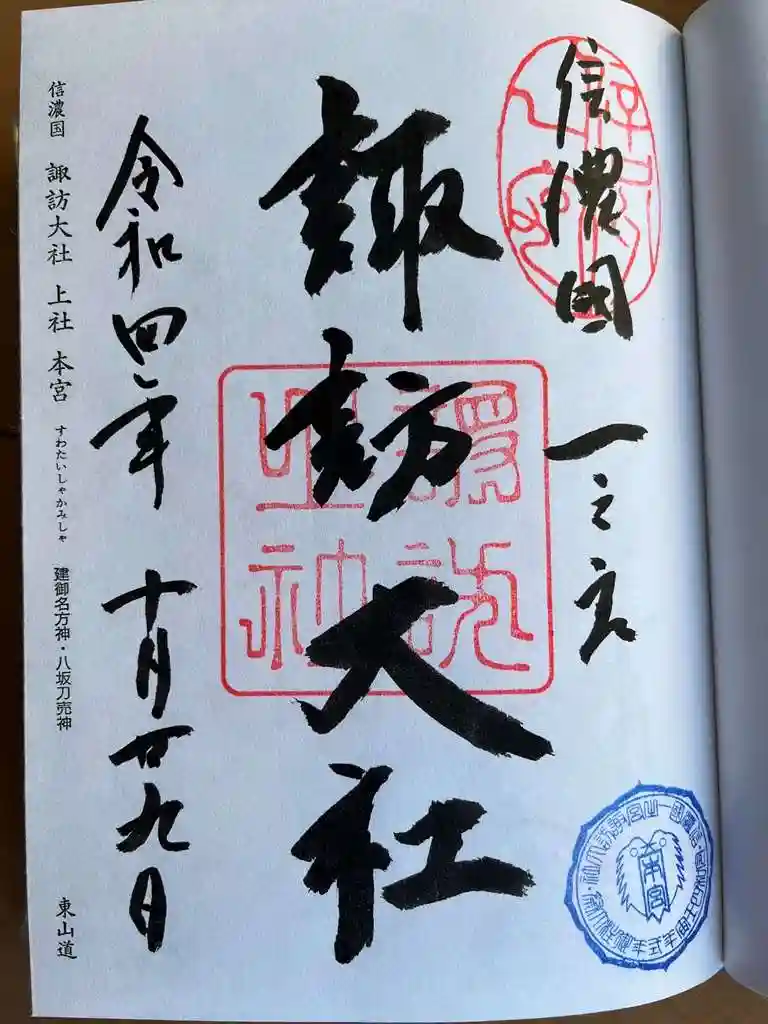 信濃國 一之宮
諏訪大社
令和四年 十月廿九日
信濃国 諏訪大社 上社 本宮 すわたいしゃかみしゃ 建御名方神・八坂刀売神 東山道
本宮